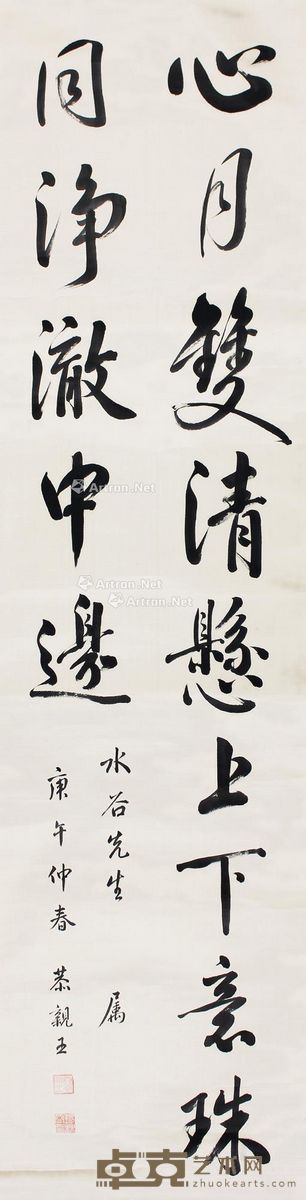 心月雙清懸上下意珠
同淨澈中邊
水谷先生 属
庚午仲春 恭親王
Artron.Net
Artron.Net
Artron.Net
Artron.Net
卓克艺术网
zhuokearts.com